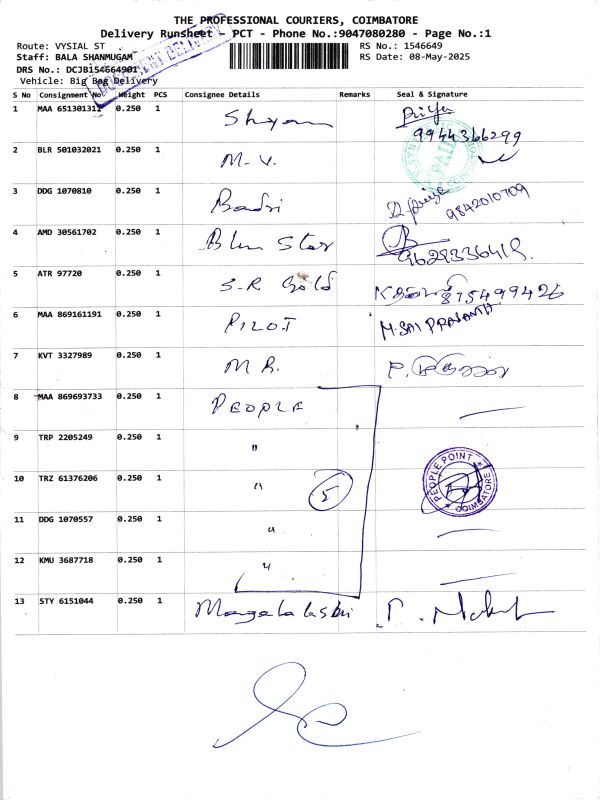 THE PROFESSIONAL COURIERS, COIMBATORE
Delivery Runsheet - PCT - Phone No.:9047080280 - Page No.:1
Route: VYSIAL ST
RS No.: 1546649
Staff: BALA SHANMUGAM
RS Date: 08-May-2025
DRS No.: DCJB154664901
Vehicle: Big Bag Delivery
S No Consignment No Weight PCS Consignee Details Remarks Seal & Signature
1 MAA 651301311 0.250 1 Shyam Priya
9944366299
PAID
2 BLR 501032021 0.250 1 M. V.
3 DDG 1070810 0.250 1 Badri 9842010709
4 AMD 30561702 0.250 1 Blue Star
9628336419.
5 ATR 97720 0.250 1 S.R Gold 8715499426
6 MAA 869161191 0.250 1 PILOT M. SAI PRASANTH
7 KVT 3327989 0.250 1 M R.
8 MAA 869693733 0.250 1 PEOPLE
9 TRP 2205249 0.250 1 "
PEOPLE POINT
COIMBATORE
10 TRZ 61376206 0.250 1 " 5
11 DDG 1070557 0.250 1 "
12 KMU 3687718 0.250 1 "
13 STY 6151044 0.250 1